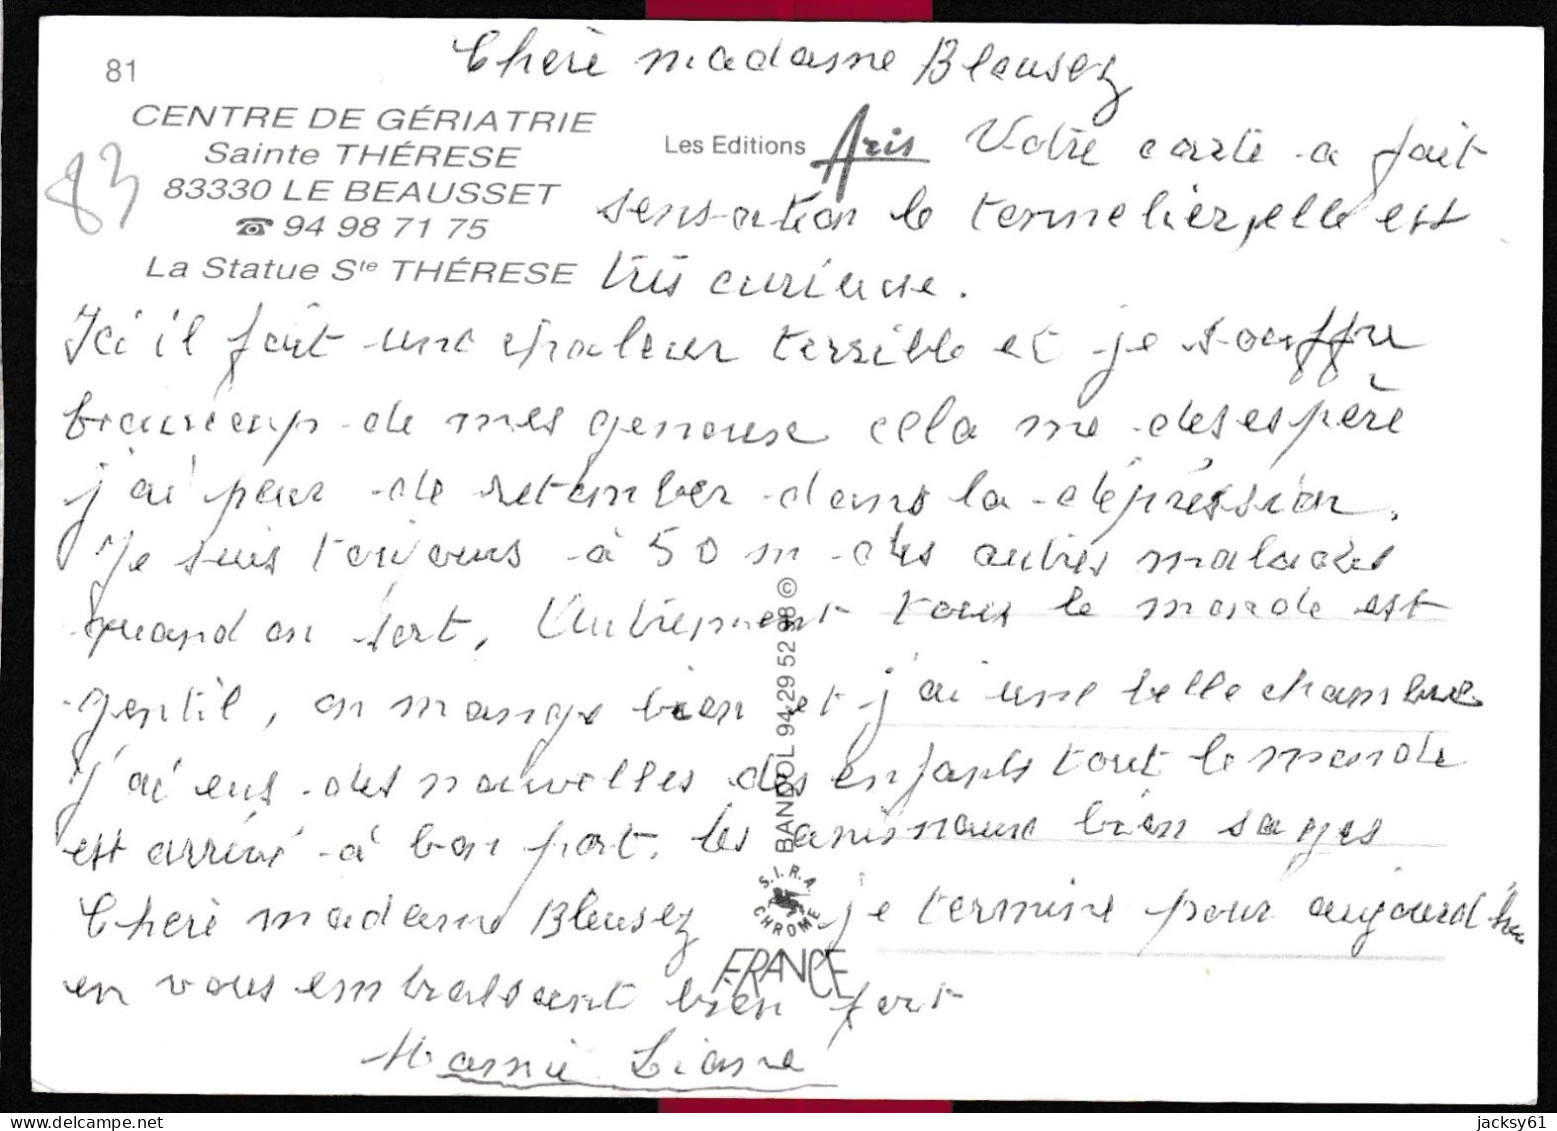 Cherè madame Bleusez
81
CENTRE DE GÉRIATRIE
Sainte THÉRESE
83330 LE BEAUSSET
☎ 94 98 71 75
La Statue Ste THÉRESE
83
Les Editions Aris
Votre carte a fait
sensation le temmelier, elle est
très curieuse.
Ici il fait une chaleur terrible et je souffre
beaucoup de mes genoux cela me desespère
j'ai peur de retomber dans la dépression.
Je suis toujours à 50 m des autres malades
quand on sort, Autrement tous le monde est
gentil, on mange bien et j'ai une belle chambre
J'ai eus des nouvelles des enfants tout le monde
est arrivé à bon port. les animaux bien sages
Cherè madame Bleusez je termine pour aujourd'hui
en vous embrassant bien fort
Mamie Liane
BANDOL 94 29 52 98 ©
S.I.R.A.
CHROME
FRANCE
jacksy61